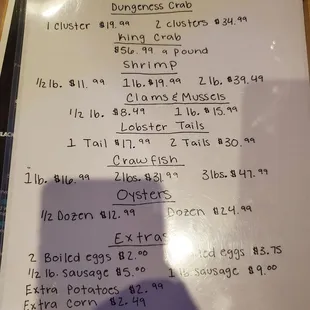 Dungeness Crab
1 cluster $19.99 2 clusters $34.99
King Crab
$56.99 a Pound
Shrimp
1/2 lb. $11.99 1 lb. $19.99 2 lb. $39.49
Clams & Mussels
1/2 lb. $8.49 1 lb. $15.99
Lobster Tails
1 Tail $17.99 2 Tails $30.99
Crawfish
1 lb. $16.99 2 lbs. $31.99 3 lbs. $47.99
Oysters
1/2 Dozen $12.99 Dozen $24.99
Extras
2 Boiled eggs $2.00 eggs $3.75
1/2 lb. Sausage $5.00 1 lb. Sausage $9.00
Extra Potatoes $2.99
Extra Corn $2.49